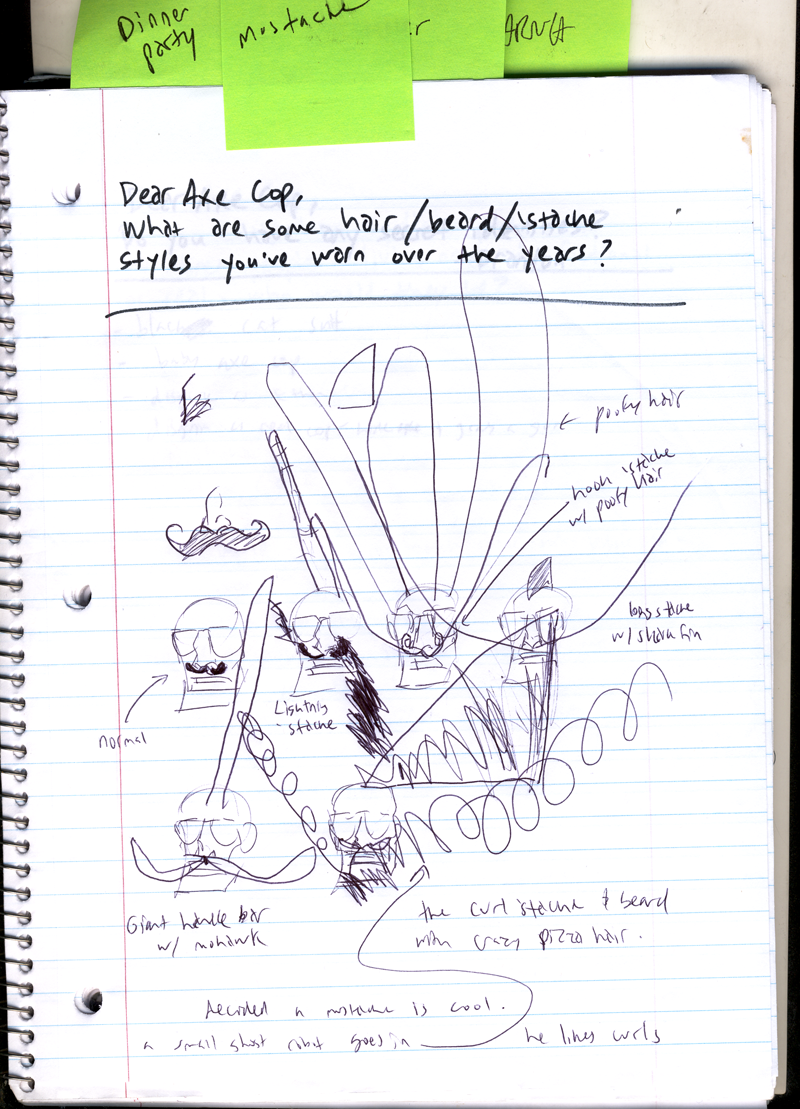 Dinner
party
Mustache
er
ARNA
Dear Axe Cop,
What are some hair/beard/'stache
styles you've worn over the years?
← poofy hair
hook 'stache
w/ poofy hair
long stache
w/ shark fin
normal
Lightning
'stache
Giant handle bar
w/ mohawk
the curl 'stache & beard
with crazy pizza hair.
Decided a mustache is cool.
a small ghost robot goes in
he likes curls